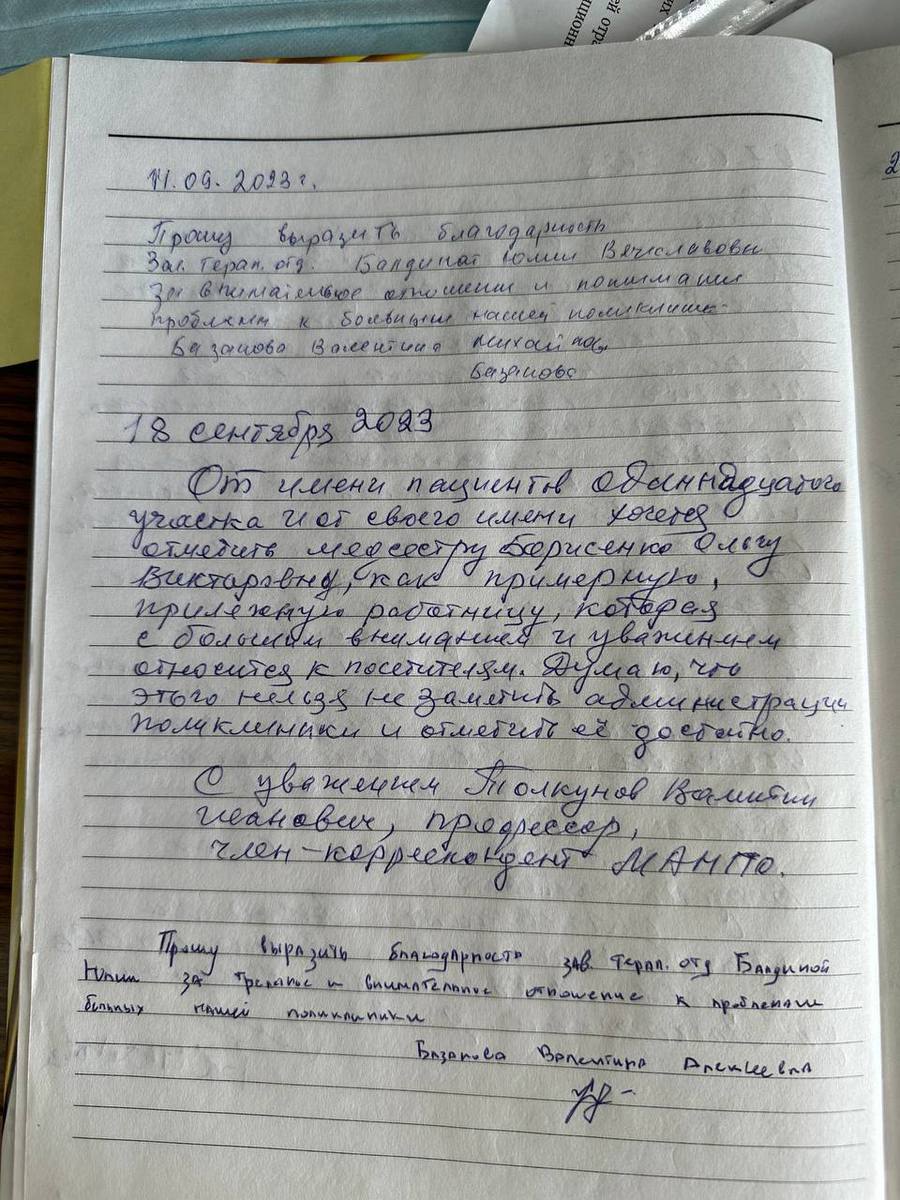 11.09.2023г.
Прошу выразить благодарность
Зав. Терап. отд. Вячеславовн
За внимательное отношении и понимании
проблемы к больным нашей поликлинике
Базанова Валентина
Базанова
18 сентября 2023
От имени пациентов одиннадцатого
участка и от своего имени хочется
отметить медсестру Борисенко Ольгу
Викторовну, как примерную,
прилежную работницу, которая
с большим вниманием и уважением
относится к посетителям. Думаю, что
этого нельзя не заметить администрации
поликлиники и отметить её достойно.
С уважением Толкунов Валентин
Иванович, профессор,
член-корреспондент МАНПО.
Прошу выразить благодарность зав. терап. отд Балдиной
Юлии за и внимательное отношение к проблемам
больных нашей поликлиники
Базанова Валентина Алексеевна
2